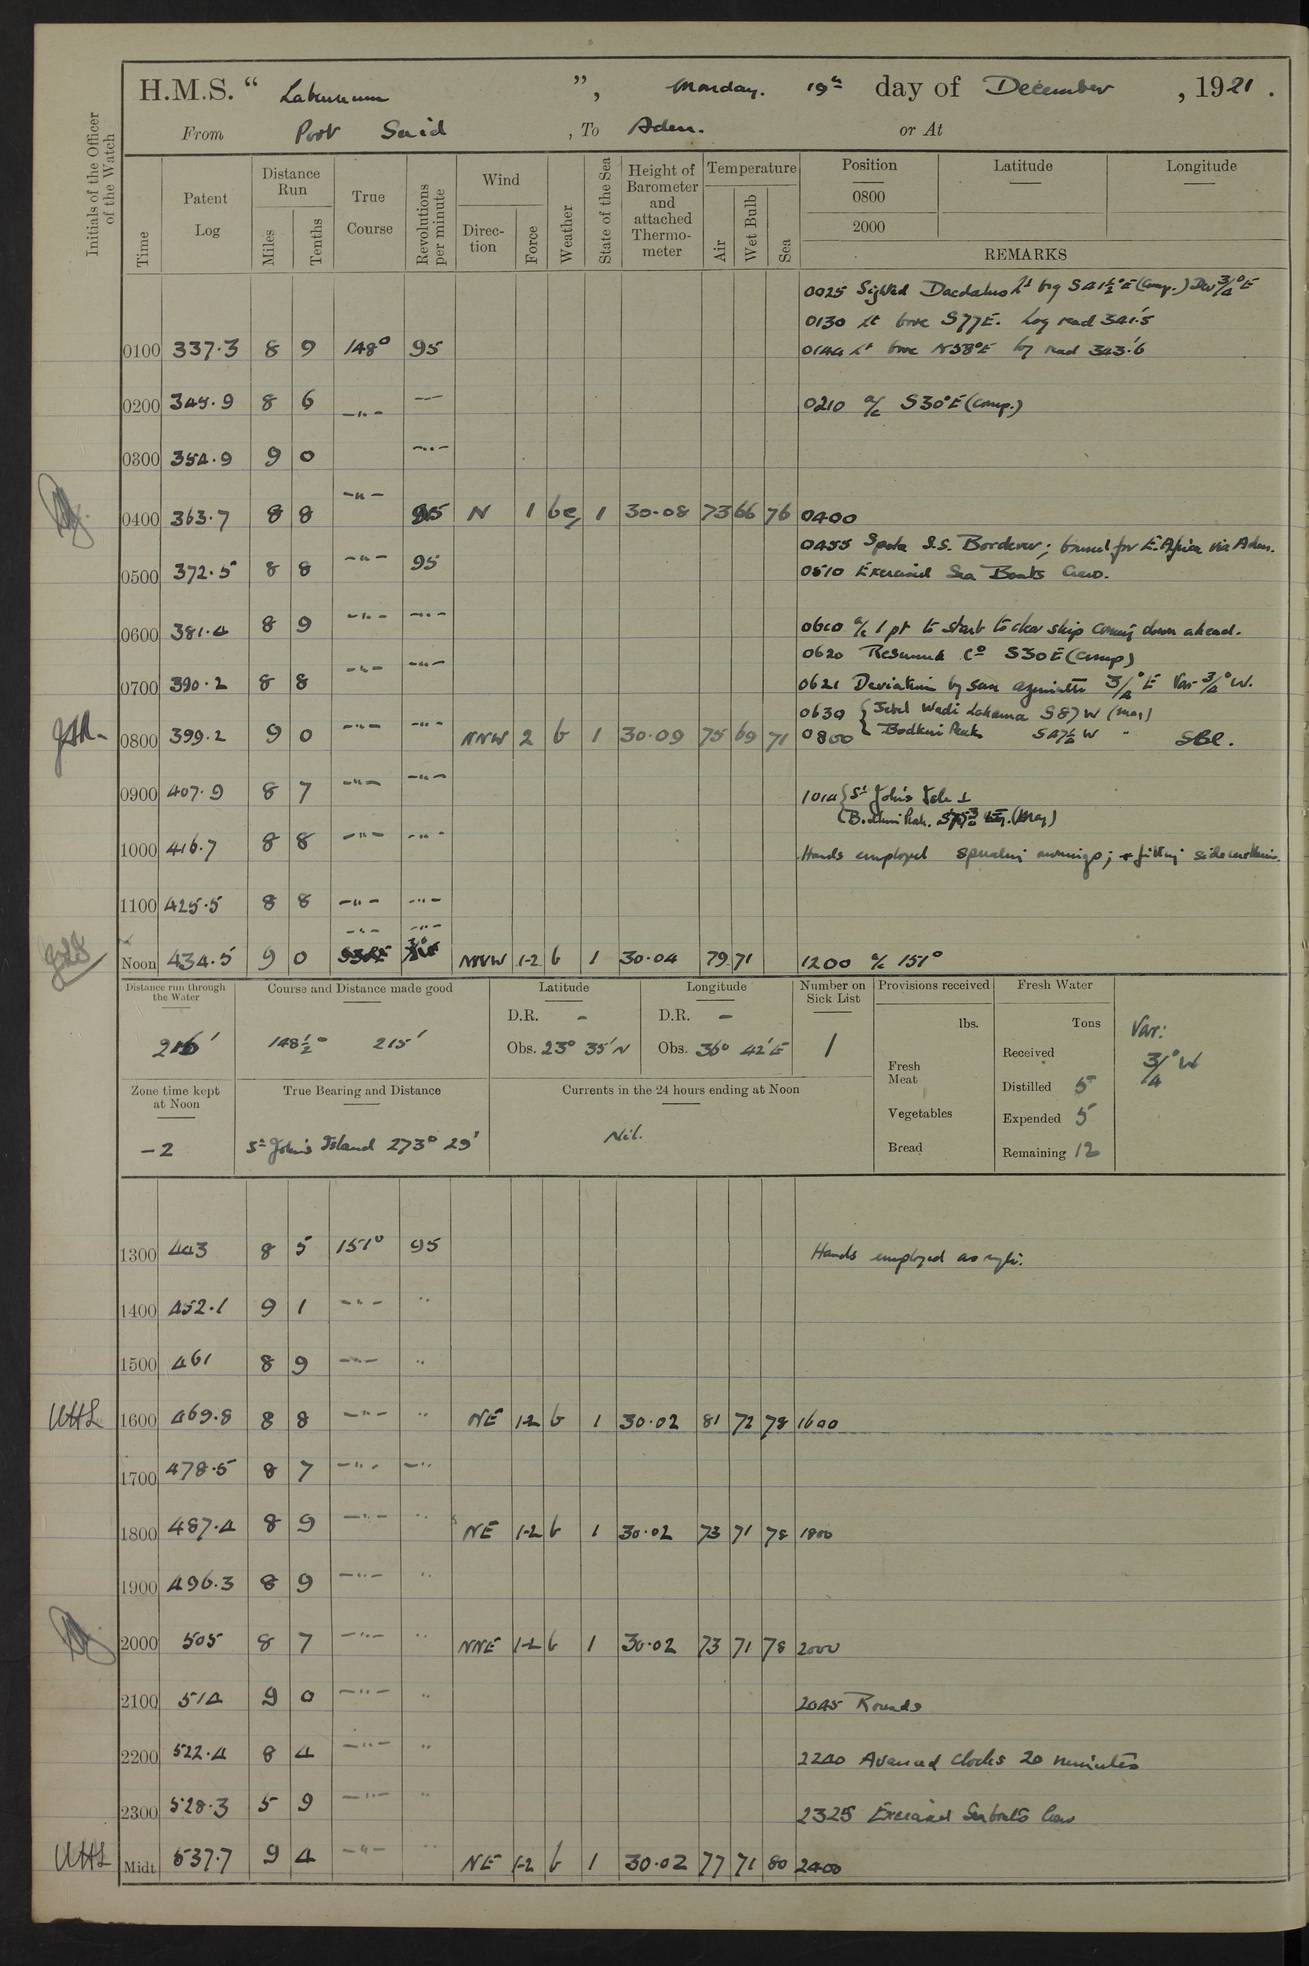 H.M.S. “ Laburnum ”, Monday. 19th day of December, 1921.
From Port Said, To Aden. or At
Initials of the Officer of the Watch
Time Patent Log Distance Run Miles Tenths True Course Revolutions per minute Wind Direction Force Weather State of the Sea Height of Barometer and attached Thermometer Temperature Air Wet Bulb Sea
Position Latitude Longitude
0800
2000
REMARKS
0025 Sighted Daedalus Lt brg S41½°E (Comp.) Dev ¾°E
0130 Lt bore S77E. Log read 341.5
0100 337.3 8 9 148° 95 0144 Lt bore N58°E log read 343.6
0200 345.9 8 6 —"— —"— 0210 a/c S30°E (Comp.)
0300 354.9 9 0 —"—
0400 363.7 8 8 —"— 95 N 1 bc 1 30.08 73 66 76 0400
0455 Spoke S.S. Borderer; bound for E. Africa via Aden.
0500 372.5 8 8 —"— 95 0510 Exercised Sea Boats Crew.
0600 381.4 8 9 —"— —"— 0610 a/c 1 pt to starb to clear ship coming down ahead.
0620 Resumed Co S30E (Comp)
0700 390.2 8 8 —"— —"— 0621 Deviation by sun azimuth ¾°E Var ¾°W.
0630 { Jebel Wadi Lahama S87W (mag)
0800 399.2 9 0 —"— —"— NNW 2 b 1 30.09 75 69 71 0800 Bodkin Peak S47½W " SBE.
0900 407.9 8 7 —"— —"— 1014 { St John's Isle
Bodkin Peak. (Mag)
1000 416.7 8 8 —"— —"— Hands employed spreading awnings; + fitting side curtains.
1100 425.5 8 8 —"— —"—
Noon 434.5 9 0 —"— —"— NNW 1-2 b 1 30.04 79 71 1200 a/c 151°
Distance run through the Water Course and Distance made good Latitude Longitude Number on Sick List Provisions received Fresh Water
216' 148½° 215' D.R. - D.R. - 1 lbs. Tons Var: ¾°W
Obs. 23° 35'N Obs. 36° 42'E Fresh Meat Received
Zone time kept at Noon True Bearing and Distance Currents in the 24 hours ending at Noon Distilled 5
Vegetables Expended 5
-2 St John's Island 273° 29' Nil. Bread Remaining 12
1300 443 8 5 151° 95 Hands employed as reqte.
1400 452.1 9 1 —"— "
1500 461 8 9 —"— "
WHL 1600 469.8 8 8 —"— " NE 1-2 b 1 30.02 81 72 78 1600
1700 478.5 8 7 —"— —"
1800 487.4 8 9 —"— " NE 1-2 b 1 30.02 73 71 78 1800
1900 496.3 8 9 —"— "
2000 505 8 7 —"— " NNE 1-2 b 1 30.02 73 71 78 2000
2100 514 9 0 —"— " 2045 Rounds
2200 522.4 8 4 —"— " 2240 Avanced clocks 20 minutes
2300 528.3 5 9 —"— " 2325 Exercised Seaboats Crew
WHL Midt 537.7 9 4 —"— " NE 1-2 b 1 30.02 77 71 80 2400